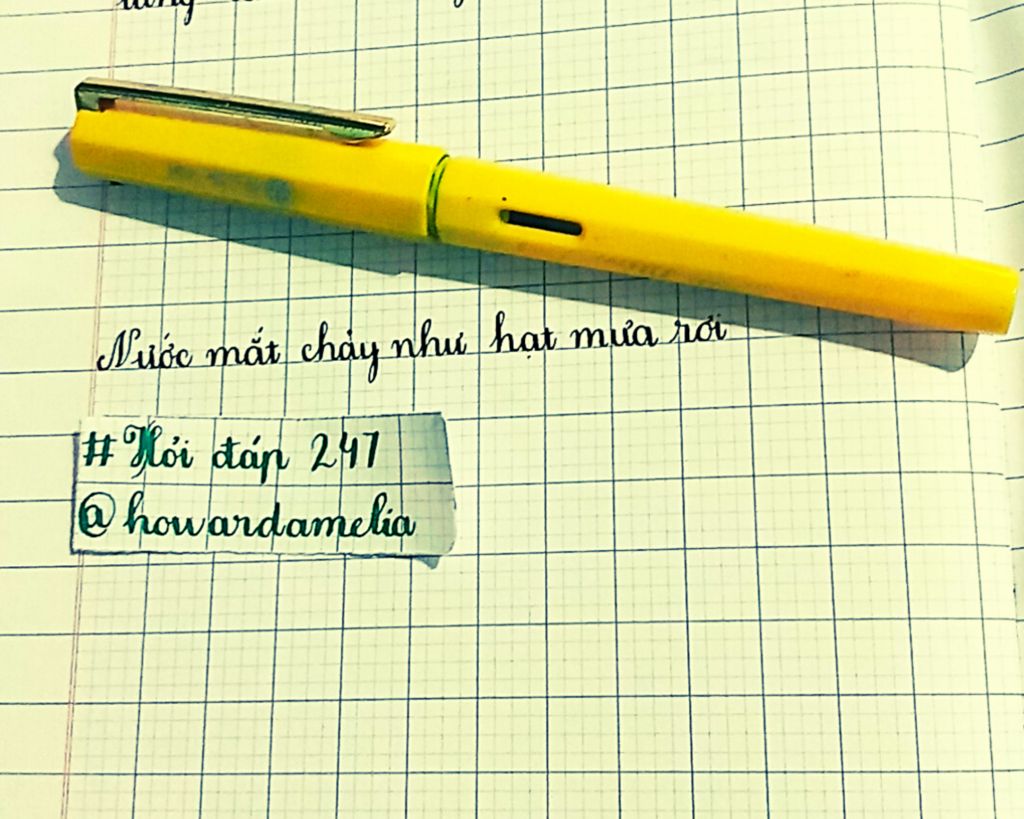 Nước mắt chảy như hạt mưa rơi
#Hỏi đáp 247
@howardamelia